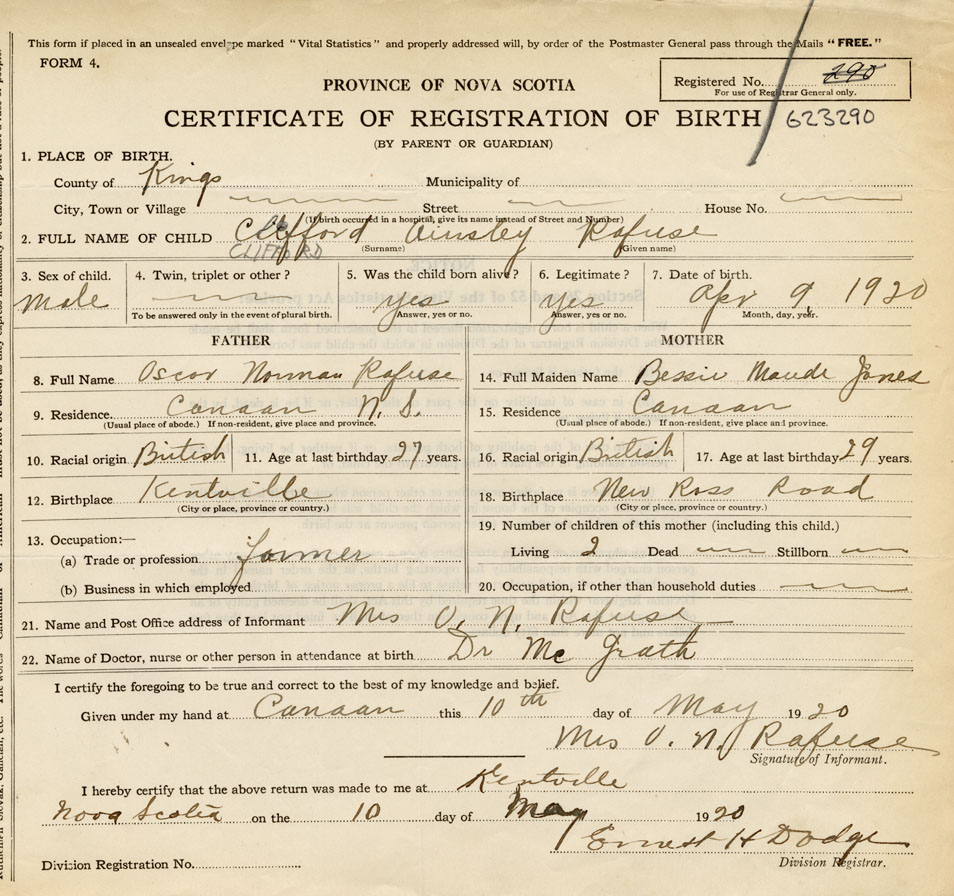 This form if placed in an unsealed envelope marked "Vital Statistics" and properly addressed will, by order of the Postmaster General pass through the Mails "FREE."
FORM 4.
Registered No. 290
For use of Registrar General only.
PROVINCE OF NOVA SCOTIA
CERTIFICATE OF REGISTRATION OF BIRTH 623290
(BY PARENT OR GUARDIAN)
1. PLACE OF BIRTH.
County of Kings Municipality of
City, Town or Village Street House No.
(If birth occurred in a hospital, give its name instead of Street and Number)
2. FULL NAME OF CHILD Clifford Ainsley Rafuse
CLIFFORD (Surname) (Given name)
3. Sex of child. 4. Twin, triplet or other? 5. Was the child born alive? 6. Legitimate? 7. Date of birth.
Male yes yes Apr 9 1920
To be answered only in the event of plural birth. Answer, yes or no. Answer, yes or no. Month, day, year.
FATHER
8. Full Name Oscar Norman Rafuse
9. Residence. Canaan N. S.
(Usual place of abode.) If non-resident, give place and province.
10. Racial origin British 11. Age at last birthday 27 years.
12. Birthplace Kentville
(City or place, province or country.)
13. Occupation:—
(a) Trade or profession farmer
(b) Business in which employed
MOTHER
14. Full Maiden Name Bessie Maude Jones
15. Residence Canaan
(Usual place of abode.) If non-resident, give place and province.
16. Racial origin British 17. Age at last birthday 29 years.
18. Birthplace New Ross Road
(City or place, province or country.)
19. Number of children of this mother (including this child.)
Living 2 Dead Stillborn
20. Occupation, if other than household duties
21. Name and Post Office address of Informant Mrs O. N. Rafuse
22. Name of Doctor, nurse or other person in attendance at birth Dr Mc Grath
I certify the foregoing to be true and correct to the best of my knowledge and belief.
Given under my hand at Canaan this 10th day of May 1920
Mrs O. N. Rafuse
Signature of Informant.
I hereby certify that the above return was made to me at Kentville
Nova Scotia on the 10 day of May 1920
Ernest H Dodge
Division Registration No. Division Registrar.